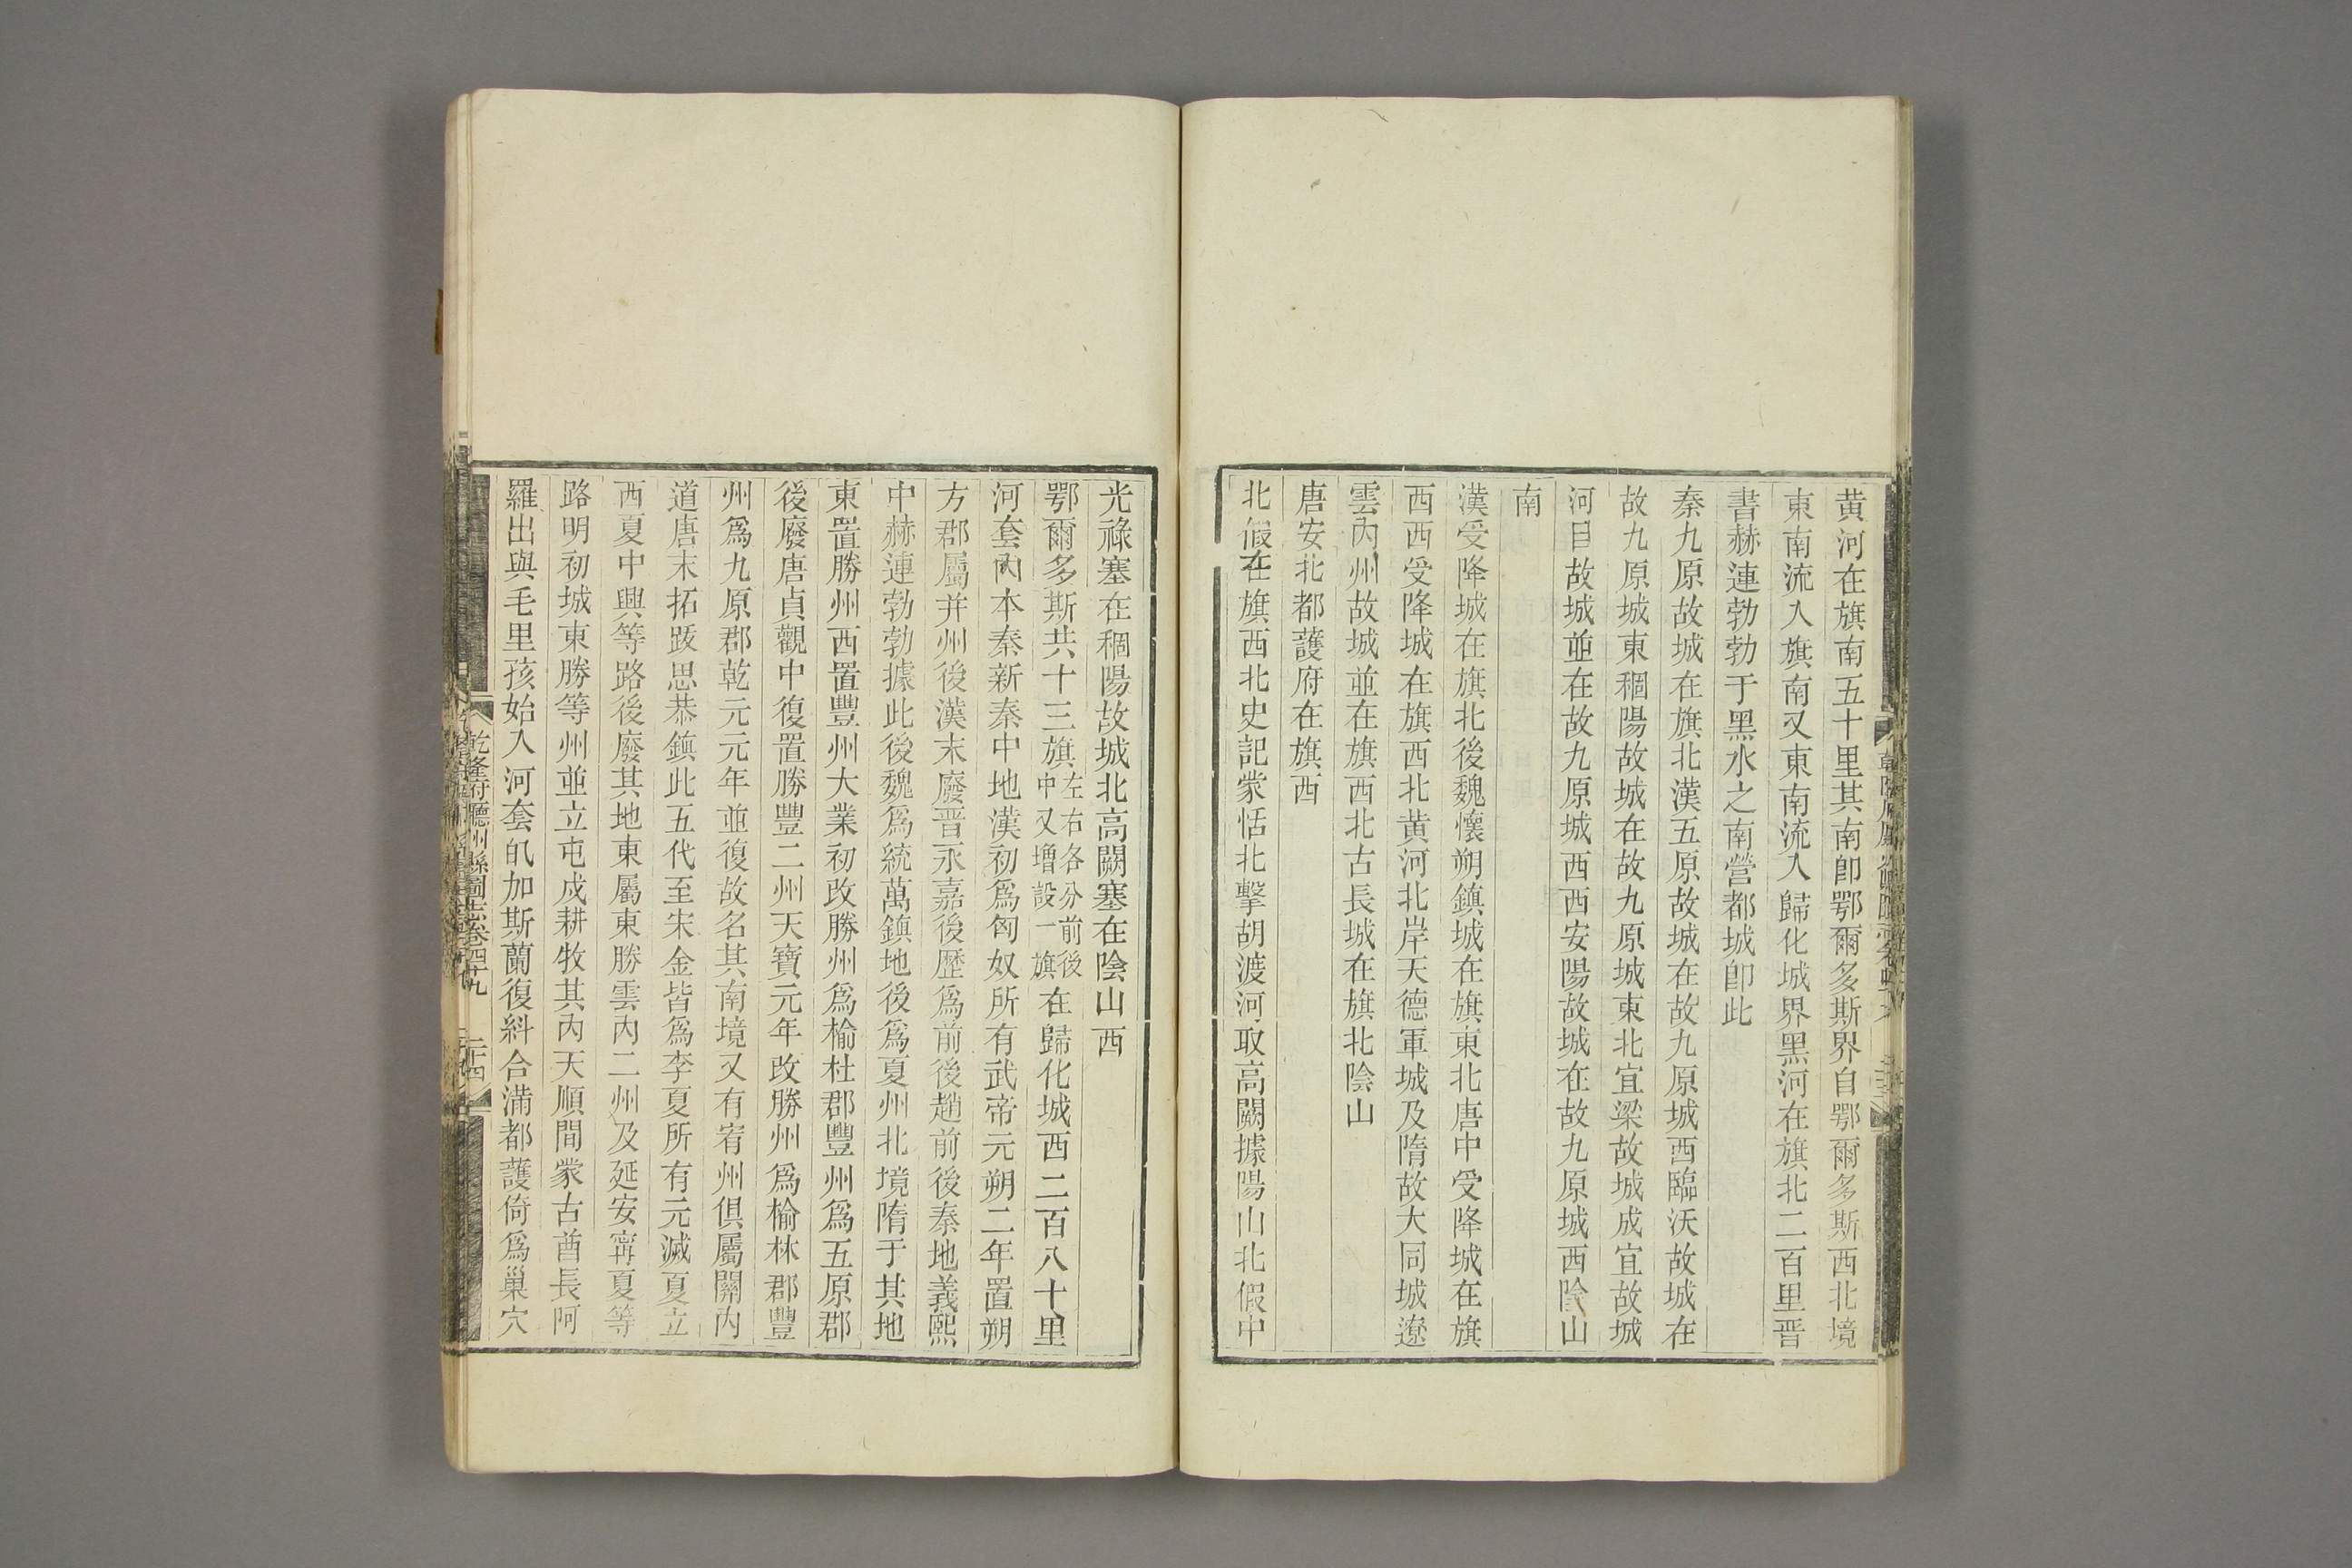 黄河在旗南五十里其南卽鄂爾多斯界自鄂爾多斯西北境
東南流入旗南又東南流入歸化城界黑河在旗北二百里晋
書赫連勃勃于黑水之南營都城卽此
秦九原故城在旗北漢五原故城在故九原城西臨沃故城在
故九原城東稒陽故城在故九原城東北宜梁故城成宜故城
河目故城並在故九原城西西安陽故城在故九原城西陰山
南
漢受降城在旗北後魏懷朔鎮城在旗東北唐中受降城在旗
西西受降城在旗西北黄河北岸天德軍城及隋故大同城遼
雲內州故城並在旗西北古長城在旗北陰山
唐安北都護府在旗西
北假在旗西北史記蒙恬北擊胡渡河取高闕據陽山北假中
光祿塞在稒陽故城北高闕塞在陰山西
鄂爾多斯共十三旗左右各分前後中又增設一旗在歸化城西二百八十里
河套內本秦新秦中地漢初爲匈奴所有武帝元朔二年置朔
方郡屬并州後漢末廢晋永嘉後歷爲前後趙前後秦地義熙
中赫連勃勃據此後魏爲統萬鎮地後爲夏州北境隋于其地
東置勝州西置豐州大業初改勝州爲榆林郡豐州爲五原郡
後廢唐貞觀中復置勝豐二州天寶元年改勝州爲榆林郡豐
州爲九原郡乾元元年並復故名其南境又有宥州俱屬關內
道唐末拓跋思恭鎮此五代至宋金皆爲李夏所有元滅夏立
西夏中興等路後廢其地東屬東勝雲內二州及延安寧夏等
路明初城東勝等州並立屯戍耕牧其內天順間蒙古酋長阿
羅出與毛里孩始入河套癿加斯蘭復糾合滿都護倚爲巢穴
乾隆府廳州縣圖志卷四十九
二十四